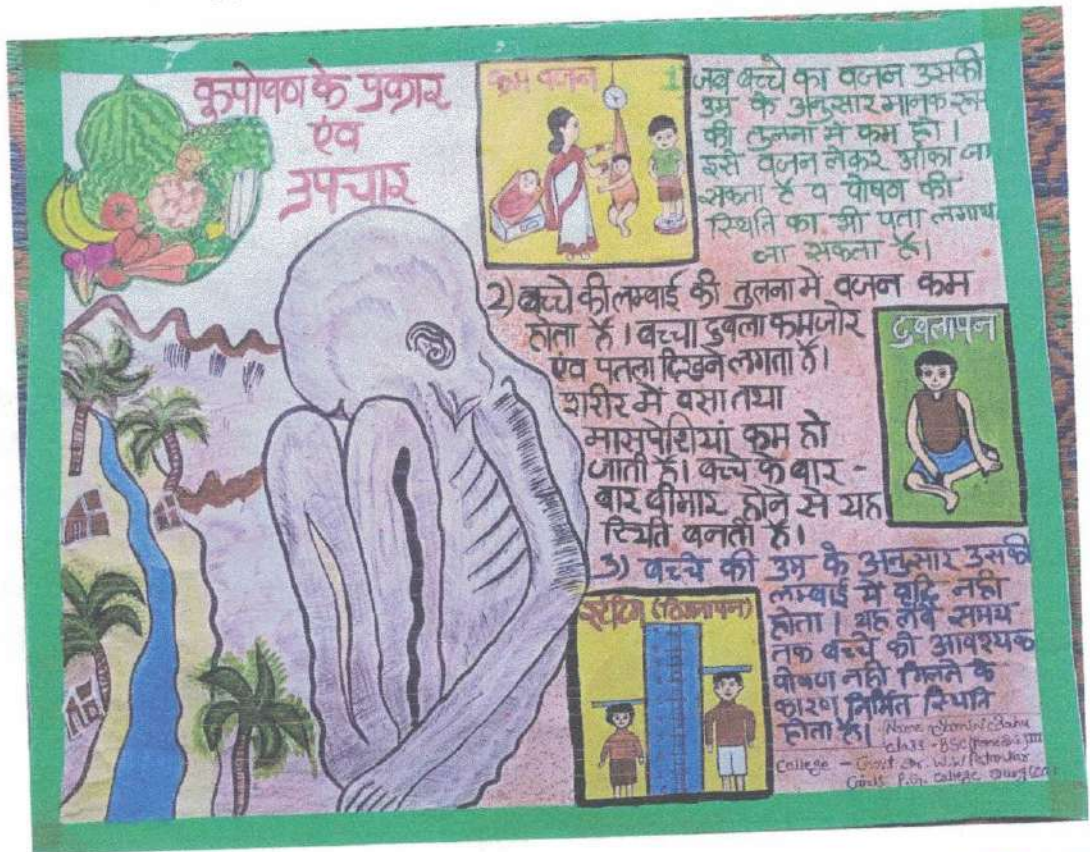 कूपोषण के प्रकार
एंव
उपचार
कम वजन
1) जब बच्चे का वजन उसकी
उम्र के अनुसार मानक रूप
की तुलना मे कम हो।
इसे वजन लेकर आँका जा
सकता है व पोषण की
स्थिति का भी पता लगाया
जा सकता है।
2) बच्चे की लम्बाई की तुलना मे वजन कम
होता है। बच्चा दुबला कमजोर
एंव पतला दिखने लगता है।
शरीर में वसा तथा
मासपेशियां कम हो
जाती है। बच्चे के बार -
बार बीमार होने से यह
स्थिति बनती है।
दुबलापन
3) बच्चे की उम्र के अनुसार उसकी
लम्बाई मे वृद्धि नही
होता। यह लंबे समय
तक बच्चे को आवश्यक
पोषण नही मिलने के
कारण निर्मित स्थिति
होता है।
(ठिगनापन)
Name
class - BSc
College - Govt Dr. W.W Patankar
Girls P.G. College Durg